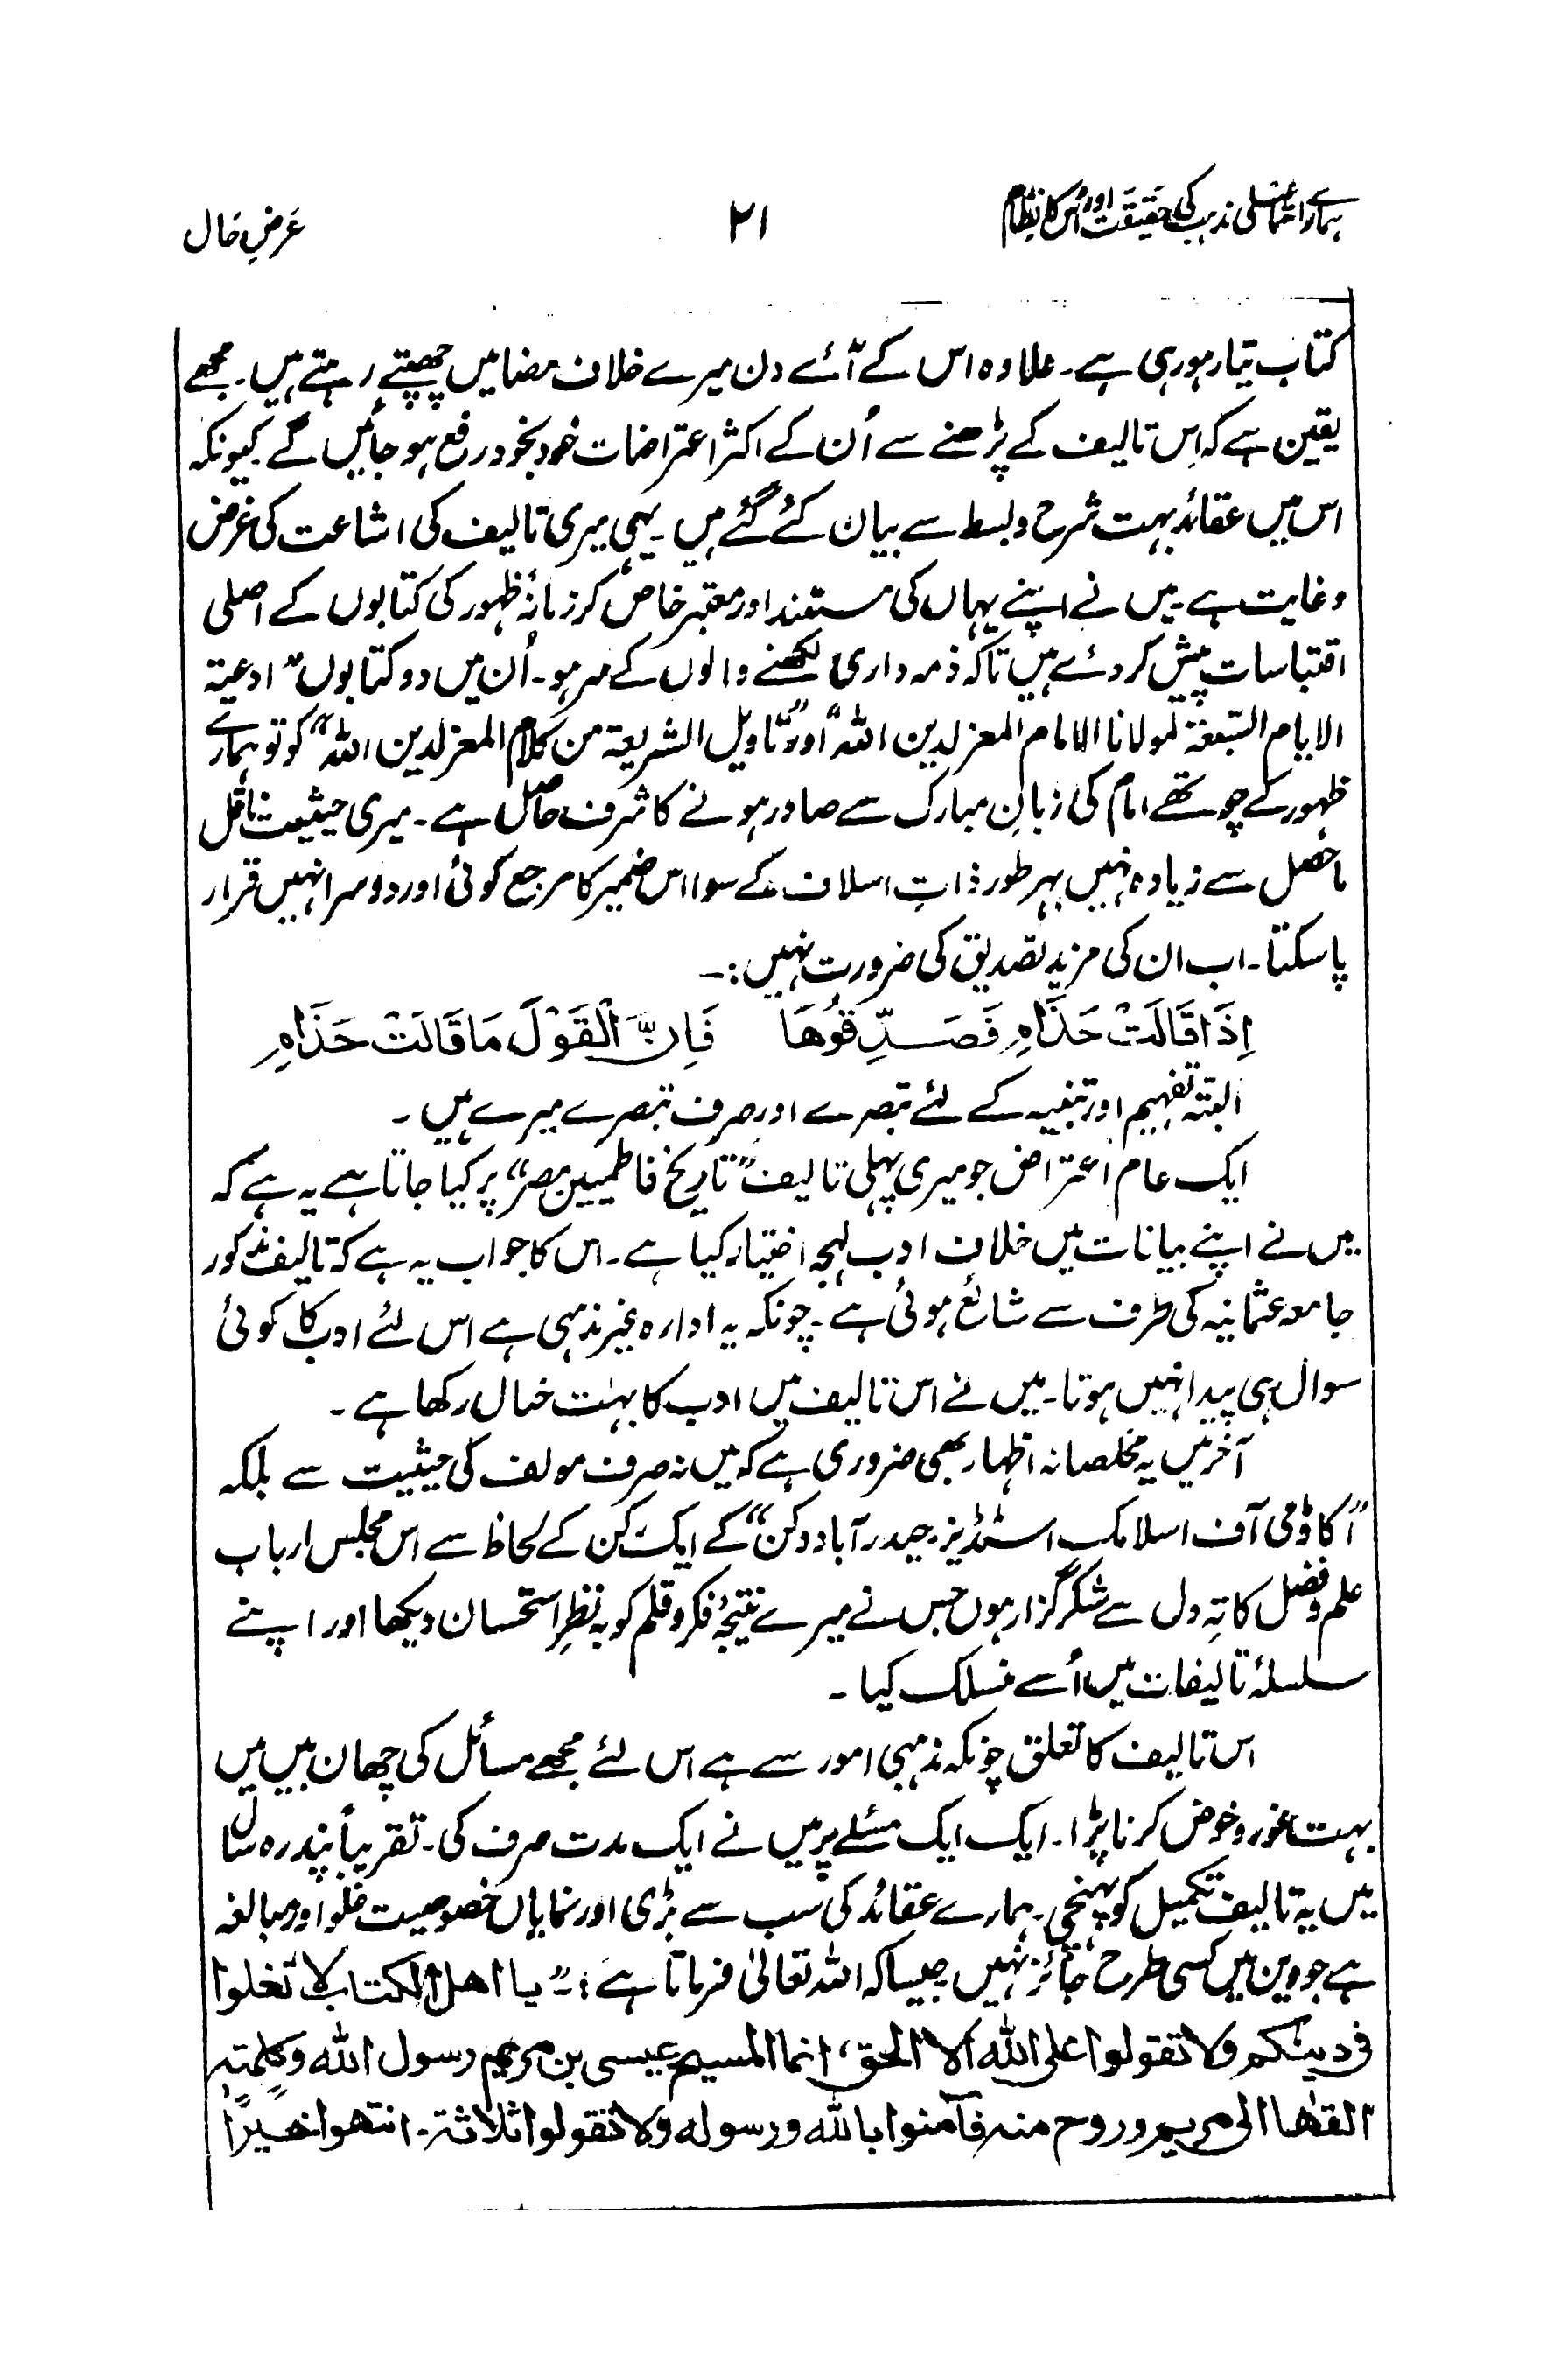 ہمارے اسماعیلی مذہب کی حقیقت اور اس کا نظام
۲۱
عَرضِ حَال
کتاب تیار ہو رہی ہے۔ علاوہ اس کے آئے دن میرے خلاف مضامیں چھپتے رہتے ہیں۔ مجھے
یقین ہے کہ اِس تالیف کے پڑھنے سے اُن کے اکثر اعتراضات خود بخود رفع ہو جائیں گے۔ کیونکہ
اس میں عقائد بہت شرح و بسط سے بیان کئے گئے ہیں۔ یہی میری تالیف کی اشاعت کی غرض
و غایت ہے۔ میں نے اپنے یہاں کی مستند اور معتبر خاص کر زمانۂ ظہور کی کتابوں کے اصلی
اقتباسات پیش کر دئے ہیں تاکہ ذمہ داری لکھنے والوں کے سر ہو۔ اُن میں دو کتابوں "ادعیۃ
الایام السّبعۃ لمولانا الامام المعز لدین اللہ" اور "تاویل الشریعۃ من کلام المعز لدین اللہ" کو تو ہمارے
ظہور کے چوتھے امام کی زبانِ مبارک سے صادر ہونے کا شرف حاصل ہے۔ میری حیثیت ناقل
ماحصل سے زیادہ نہیں بہر طور ذاتِ اسلاف کے سوا اس ضمیر کا مرجع کوئی اور دوسرا نہیں قرار
پا سکتا۔ اب ان کی مزید تصدیق کی ضرورت نہیں:۔
اِذَا قَالَتْ حَذَامِ فَصَدِّقُوْهَا فَاِنَّ الْقَوْلَ مَا قَالَتْ حَذَامِ
البتہ تفہیم اور تنبیہ کے لئے تبصرے اور صرف تبصرے میرے ہیں۔
ایک عام اعتراض جو میری پہلی تالیف "تاریخ فاطمیین مصر" پر کیا جاتا ہے یہ ہے کہ
میں نے اپنے بیانات میں خلاف ادب لہجہ اختیار کیا ہے۔ اس کا جواب یہ ہے کہ تالیف مذکور
جامعہ عثمانیہ کی طرف سے شائع ہوئی ہے۔ چونکہ یہ ادارہ غیر مذہبی ہے اس لئے ادب کا کوئی
سوال ہی پیدا نہیں ہوتا۔ میں نے اس تالیف میں ادب کا بہت خیال رکھا ہے۔
آخر میں یہ مخلصانہ اظہار بھی ضروری ہے کہ میں نہ صرف مولف کی حیثیت سے بلکہ
"اکاڈمی آف اسلامک اسٹڈیز۔ حیدرآباد دکن" کے ایک رکن کے لحاظ سے اس مجلس ارباب
علم و فضل کا تِہ دل سے شکر گزار ہوں جس نے میرے نتیجۂ فکر و قلم کو بہ نظرِ استحسان دیکھا اور اپنے
سلسلۂ تالیفات میں اُسے منسلک کیا۔
اس تالیف کا تعلق چونکہ مذہبی امور سے ہے اس لئے مجھے مسائل کی چھان بین میں
بہت غور و خوض کرنا پڑا۔ ایک ایک مسئلے پر میں نے ایک مدت صرف کی۔ تقریباً پندرہ سال
میں یہ تالیف تکمیل کو پہنچی۔ ہمارے عقائد کی سب سے بڑی اور نمایاں خصوصیت غلو اور مبالغہ
ہے جو دین میں کسی طرح جائز نہیں جیسا کہ اللہ تعالیٰ فرماتا ہے:۔ "یا اهل الکتاب لا تغلوا
فی دینکم ولا تقولوا علی الله الا الحق، انما المسیح عیسی بن مریم رسول الله وکلمته
القٰها الی مریم وروح منه فآمنوا بالله ورسوله ولا تقولوا ثلاثة۔ انتهوا خیرًا